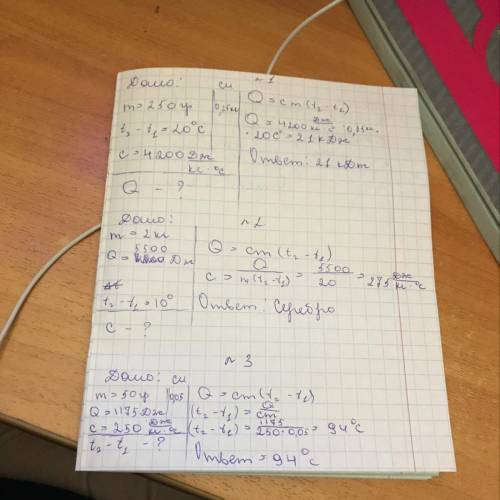 № 1
Дано:
си
m = 250 гр
0,25 кг
t₂ - t₁ = 20°C
c = 4200 Дж
кг·°C
Q - ?
Q = cm(t₂ - t₁)
Q = 4200 Дж/кг·°C · 0,25 кг ·
· 20C° = 21 кДж
Ответ: 21 кДж
№ 2
Дано:
m = 2 кг
5500
Q = Дж
t₂ - t₁ = 10°
c - ?
Q = cm(t₂ - t₁)
c = Q/m(t₂ - t₁) = 5500/20 = 275 Дж/кг·°C
Ответ: Серебро
№ 3
Дано:
си
m = 50 гр
0,05
Q = 1175 Дж
c = 250 Дж/кг·°C
t₂ - t₁ - ?
Q = cm(t₂ - t₁)
(t₂ - t₁) = Q/cm
(t₂ - t₁) = 1175/250·0,05 = 94°C
Ответ = 94°C